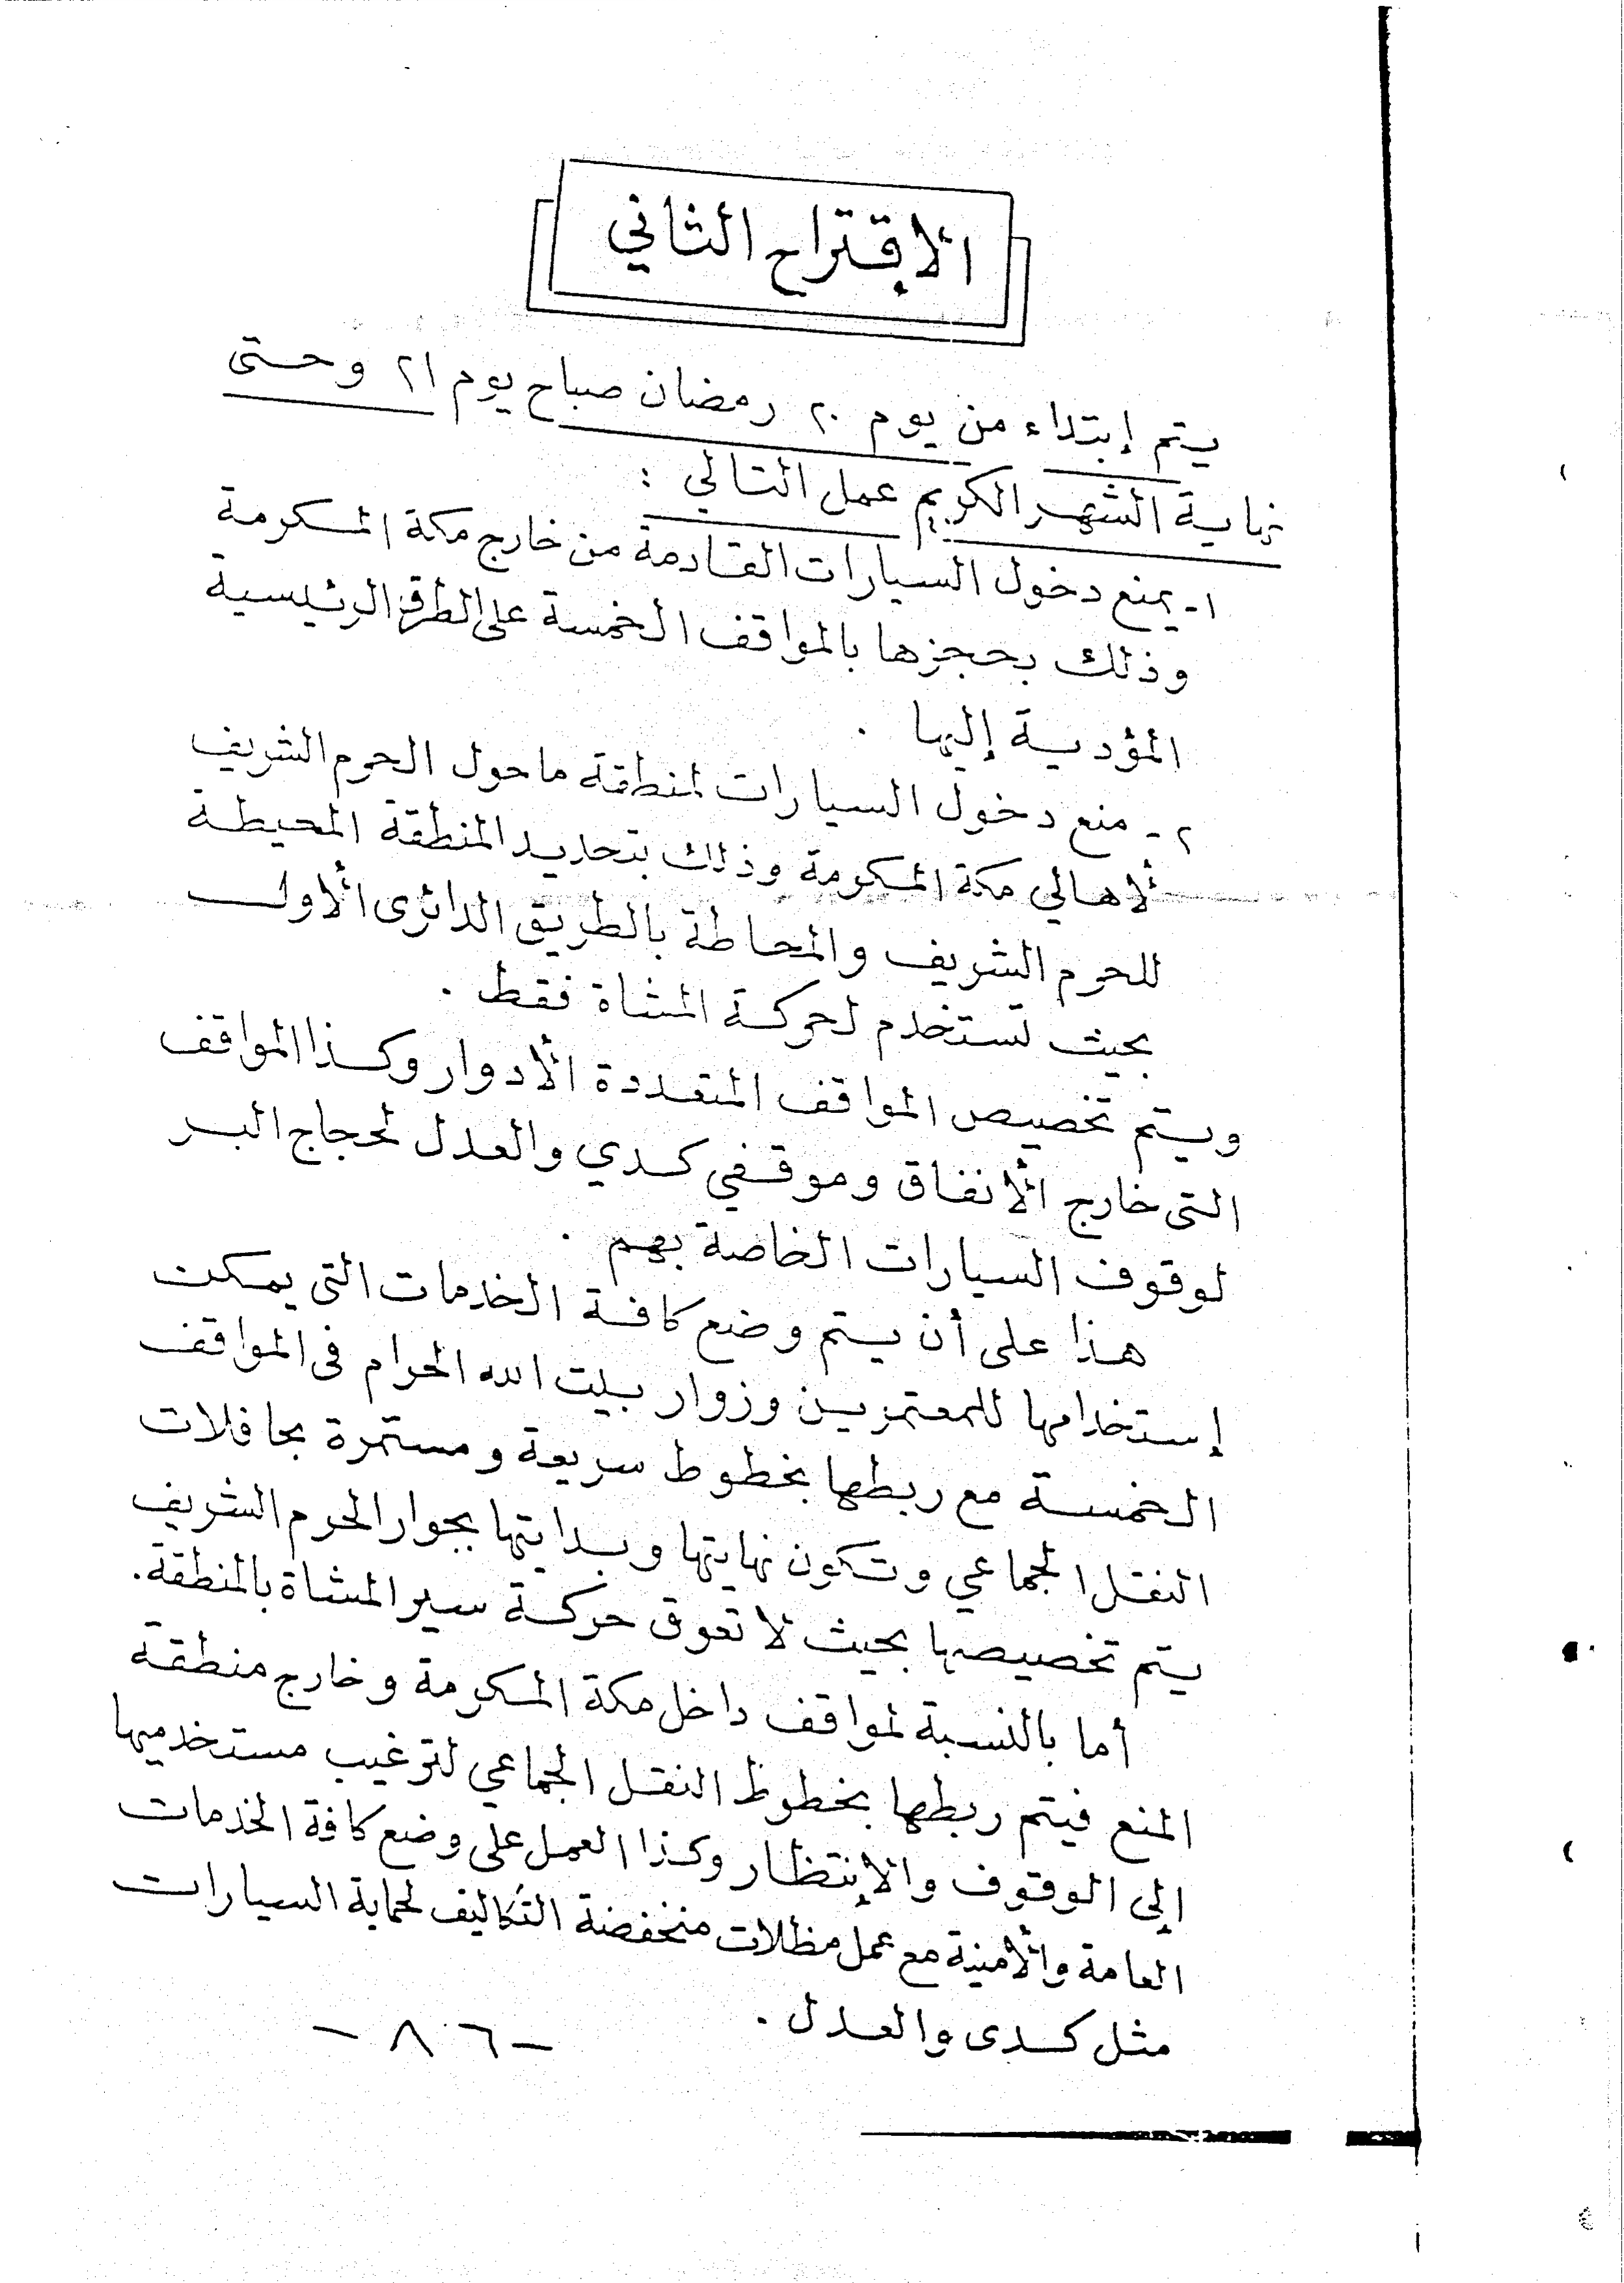 الإقتراح الثاني
يتم إبتداء من يوم ٢٠ رمضان صباح يوم ٢١ وحتى
نهاية الشهر الكريم عمل التالي :
١- يمنع دخول السيارات القادمة من خارج مكة المكرمة
وذلك بحجزها بالمواقف الخمسة على الطرق الرئيسية
المؤدية إليها .
٢- منع دخول السيارات لمنطقة ماحول الحرم الشريف
لأهالي مكة المكرمة وذلك بتحديد المنطقة المحيطة
للحرم الشريف والمحاطة بالطريق الدائرى الأول
بحيث تستخدم لحركة المشاة فقط .
ويتم تخصيص المواقف المتعددة الأدوار وكذا المواقف
التى خارج الأنفاق وموقفي كدي والعدل لحجاج البر
لوقوف السيارات الخاصة بهم .
هذا على أن يتم وضع كافة الخدمات التى يمكن
إستخدامها للمعتمرين وزوار بيت الله الحرام فى المواقف
الخمسة مع ربطها بخطوط سريعة ومستمرة بحافلات
النقل الجماعي وتكون نهايتها وبدايتها بجوار الحرم الشريف
يتم تخصيصها بحيث لا تعوق حركة سير المشاة بالمنطقة.
أما بالنسبة لمواقف داخل مكة المكرمة وخارج منطقة
المنع فيتم ربطها بخطوط النقل الجماعي لترغيب مستخدميها
إلى الوقوف والإنتظار وكذا العمل على وضع كافة الخدمات
العامة والأمنية مع عمل مظلات منخفضة التكاليف لحماية السيارات
مثل كدى والعدل .
-٨٦-